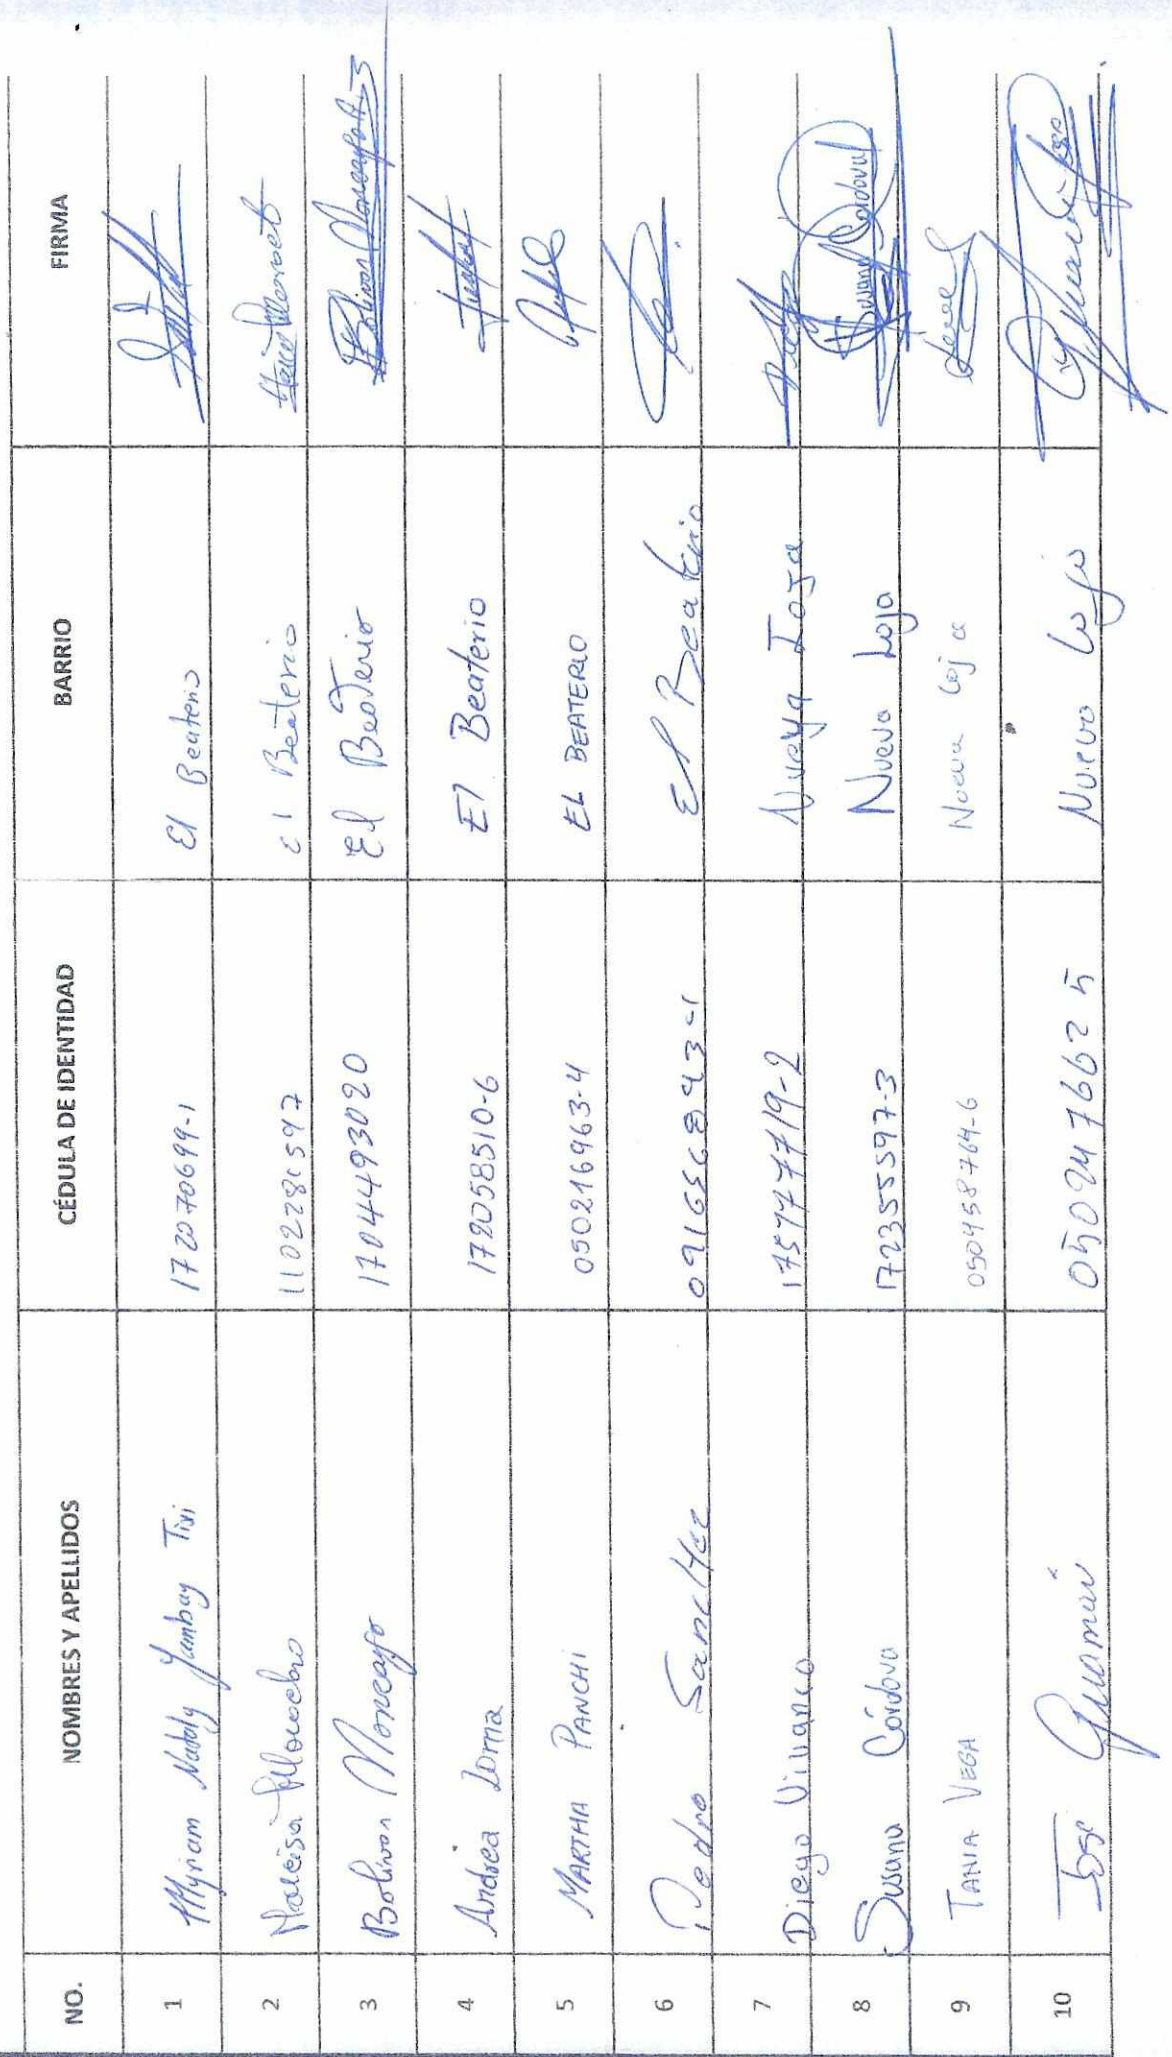 NO. NOMBRES Y APELLIDOS CÉDULA DE IDENTIDAD BARRIO FIRMA
1 Myriam Nataly Yumbay Tixi 172070699-1 El Beaterio
2 Narcisa 1102281597 El Beaterio
3 Bolivar Moncayo 1704493020 El Beaterio
4 Andrea Loma 172058510-6 El Beaterio
5 MARTHA PANCHI 050216963-4 EL BEATERIO
6 Pedro Sanchez El Beaterio
7 Diego Vivanco 175777719-2 Nueva Loja
8 Susana Córdova 172355597-3 Nueva Loja Susana Cordoval
9 TANIA VEGA 050458764-6 Nueva Loja
10 Jose Guamán 0502476625 Nuevo Loja